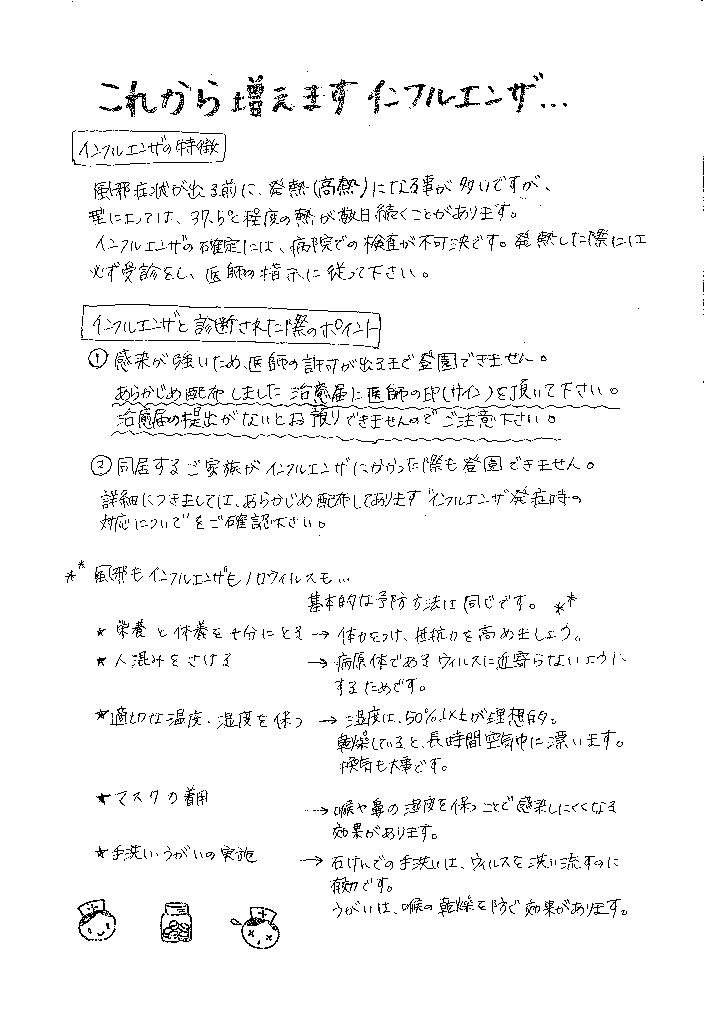 これから増えますインフルエンザ…
インフルエンザの特徴
風邪症状が出る前に、発熱(高熱)になる事が多いですが、
型によっては、37.5℃程度の熱が数日続くことがあります。
インフルエンザの確定には、病院での検査が不可決です。発熱した際には
必ず受診をし、医師の指示に従って下さい。
インフルエンザと診断された際のポイント
① 感染が強いため、医師の許可が出るまで登園できません。
あらかじめ配布しました治癒届に医師の印(サイン)を頂いて下さい。
治癒届の提出がないとお預りできませんのでご注意下さい。
② 同居するご家族がインフルエンザにかかった際も登園できません。
詳細につきましては、あらかじめ配布してあります"インフルエンザ発症時の
対応について"をご確認下さい。
** 風邪もインフルエンザもノロウィルスも…
基本的な予防方法は同じです。**
★ 栄養と休養を十分にとる → 体力をつけ、抵抗力を高めましょう。
★ 人混みをさける → 病原体であるウィルスに近寄らないように
するためです。
★ 適切な温度・湿度を保つ → 湿度は、50%以上が理想的。
乾燥していると、長時間空気中に漂います。
換気も大事です。
★ マスクの着用 → 喉や鼻の湿度を保つことで感染しにくくなる
効果があります。
★ 手洗い・うがいの実施 → 石けんでの手洗いは、ウィルスを洗い流すのに
有効です。
うがいは、喉の乾燥を防ぐ効果があります。